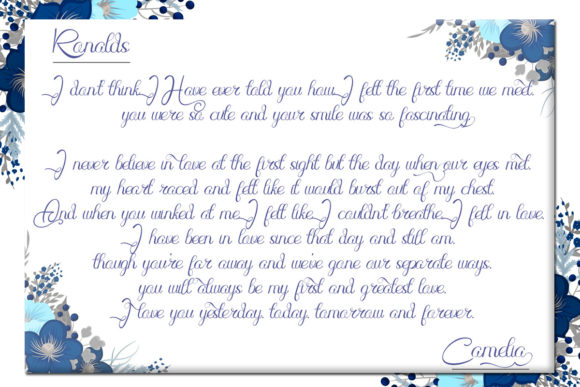 Ronalds
I don't think I Have ever told you how I felt the first time we met.
you were so cute and your smile was so fascinating
I never believe in love at the first sight but the day when our eyes met,
my heart raced and felt like it would burst out of my chest.
And when you winked at me I felt like I couldn't breathe. I fell in love.
I have been in love since that day and still am.
though you're far away and we've gone our separate ways.
you will always be my first and greatest love.
I love you yesterday, today, tomorrow and forever.
Camelia